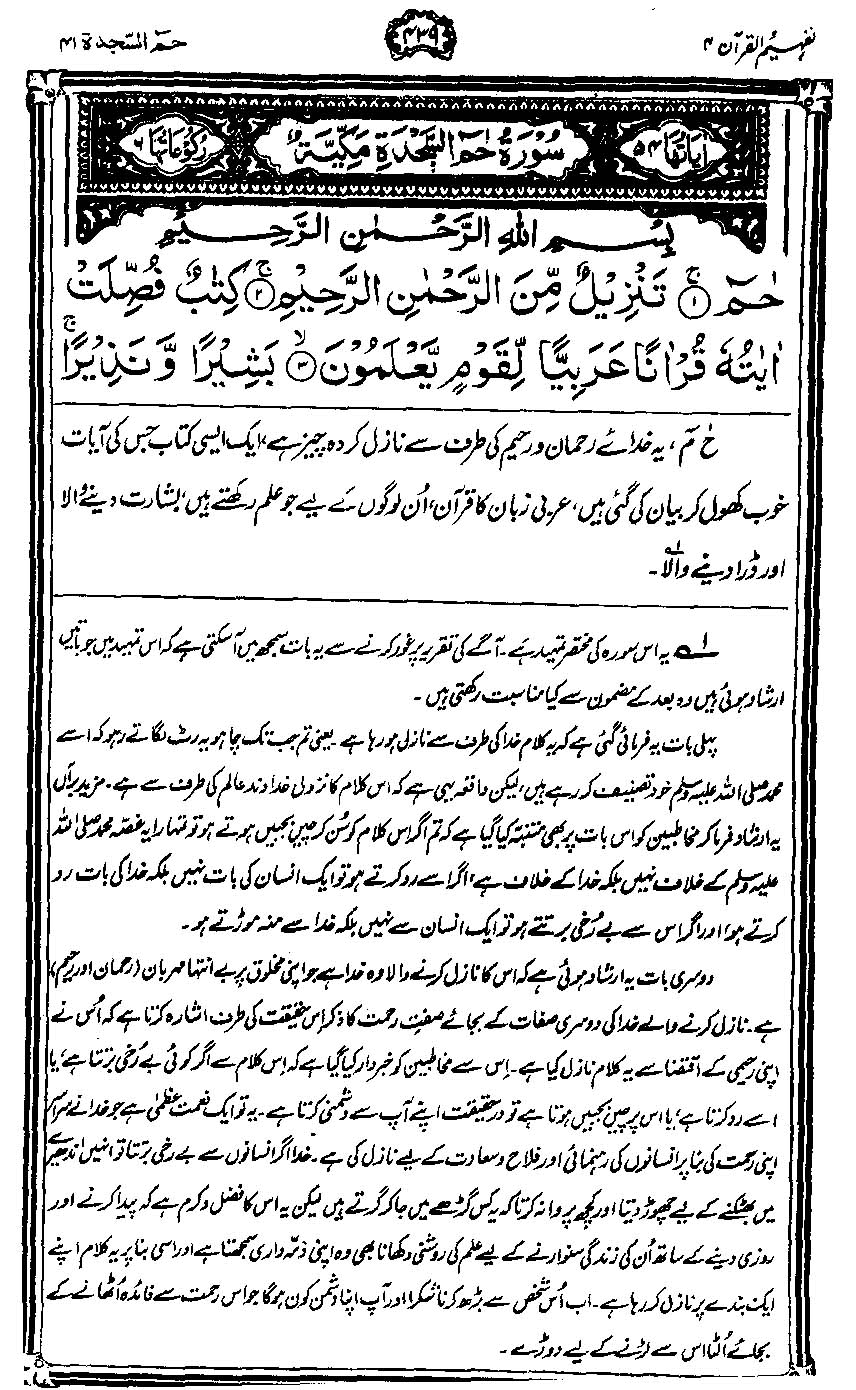 تفہیم القرآن ۴
۴۳۹
حٰمٓ السّجدۃ ۴۱
اٰیاتُھَا ۵۴
سُوْرَۃُ حٰمٓ السَّجْدَۃِ مَکِّیَّۃٌ
رُکُوْعَاتُھَا ۶
بِسْمِ اللهِ الرَّحْمٰنِ الرَّحِیْمِ
حٰمٓ ۚ۝۱ تَنْزِیْلٌ مِّنَ الرَّحْمٰنِ الرَّحِیْمِ ۚ۝۲ کِتٰبٌ فُصِّلَتْ
اٰیٰتُهٗ قُرْاٰنًا عَرَبِیًّا لِّقَوْمٍ یَّعْلَمُوْنَ ۙ۝۳ بَشِیْرًا وَّ نَذِیْرًا ۚ
حٰ مٓ، یہ خدائے رحمان و رحیم کی طرف سے نازل کردہ چیز ہے، ایک ایسی کتاب جس کی آیات
خوب کھول کر بیان کی گئی ہیں، عربی زبان کا قرآن، اُن لوگوں کے لیے جو علم رکھتے ہیں، بشارت دینے والا
اور ڈرا دینے والا۱؎۔
۱؎ یہ اس سورہ کی مختصر تمہید ہے۔ آگے کی تقریر پر غور کرنے سے یہ بات سمجھ میں آسکتی ہے کہ اس تمہید میں جو باتیں
ارشاد ہوئی ہیں وہ بعد کے مضمون سے کیا مناسبت رکھتی ہیں۔
پہلی بات یہ فرمائی گئی ہے کہ یہ کلام خدا کی طرف سے نازل ہو رہا ہے۔ یعنی تم جب تک چاہو یہ رٹ لگاتے رہو کہ اسے
محمد صلی اللہ علیہ وسلم خود تصنیف کر رہے ہیں، لیکن واقعہ یہی ہے کہ اس کلام کا نزول خداوند عالم کی طرف سے ہے۔ مزید برآں
یہ ارشاد فرما کر مخاطبین کو اس بات پر بھی متنبہ کیا گیا ہے کہ تم اگر اس کلام کو سُن کر چیں بجبیں ہوتے ہو تو تمہارا یہ غصہ محمد صلی اللہ
علیہ وسلم کے خلاف نہیں بلکہ خدا کے خلاف ہے، اگر اسے رد کرتے ہو تو ایک انسان کی بات نہیں بلکہ خدا کی بات رد
کرتے ہو، اور اگر اس سے بے رُخی برتتے ہو تو ایک انسان سے نہیں بلکہ خدا سے منہ موڑتے ہو۔
دوسری بات یہ ارشاد ہوئی ہے کہ اس کا نازل کرنے والا وہ خدا ہے جو اپنی مخلوق پر بے انتہا مہربان (رحمان اور رحیم)
ہے۔ نازل کرنے والے خدا کی دوسری صفات کے بجائے صفتِ رحمت کا ذکر اِس حقیقت کی طرف اشارہ کرتا ہے کہ اُس نے
اپنی رحیمی کے اقتضا سے یہ کلام نازل کیا ہے۔ اِس سے مخاطبین کو خبردار کیا گیا ہے کہ اِس کلام سے اگر کوئی بے رُخی برتتا ہے، یا
اسے رد کرتا ہے، یا اس پر چیں بجبیں ہوتا ہے تو درحقیقت اپنے آپ سے دشمنی کرتا ہے۔ یہ تو ایک نعمت عظمیٰ ہے جو خدا نے سراسر
اپنی رحمت کی بنا پر انسانوں کی رہنمائی اور فلاح و سعادت کے لیے نازل کی ہے۔ خدا اگر انسانوں سے بے رخی برتتا تو انہیں اندھیرے
میں بھٹکنے کے لیے چھوڑ دیتا اور کچھ پروا نہ کرتا کہ یہ کس گڑھے میں جا کر گرتے ہیں لیکن یہ اس کا فضل و کرم ہے کہ پیدا کرنے اور
روزی دینے کے ساتھ اُن کی زندگی سنوارنے کے لیے علم کی روشنی دکھانا بھی وہ اپنی ذمہ داری سمجھتا ہے اور اسی بنا پر یہ کلام اپنے
ایک بندے پر نازل کر رہا ہے۔ اب اُس شخص سے بڑھ کر ناشکرا اور آپ اپنا دشمن کون ہوگا جو اس رحمت سے فائدہ اُٹھانے کے
بجائے اُلٹا اس سے لڑنے کے لیے دوڑے۔